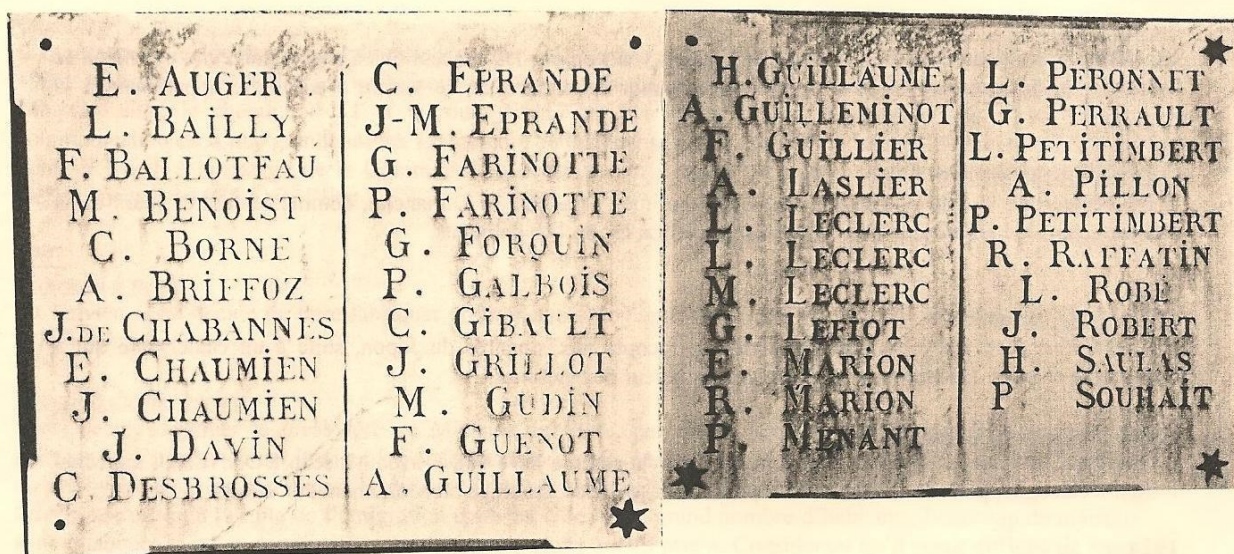 E. AUGER
L. BAİLLY
F. BALLOTFAU
M. BENOİST
C. BORNE
A. BRİFFOZ
J. DE CHABANNES
E. CHAUMİEN
J. CHAUMİEN
J. DAVİN
C. DESBROSSES
C. EPRANDE
J-M. EPRANDE
G. FARİNOTTE
P. FARİNOTTE
G. FORQUİN
P. GALBOİS
C. GİBAULT
J. GRİLLOT
M. GUDİN
F. GUENOT
A. GUİLLAUME
H. GUİLLAUME
A. GUİLLEMİNOT
F. GUİLLİER
A. LASLİER
L. LECLERC
L. LECLERC
M. LECLERC
G. LEFİOT
E. MARİON
R. MARİON
P. MENANT
L. PÉRONNET
G. PERRAULT
L. PETİTİMBERT
A. PİLLON
P. PETİTİMBERT
R. RAFFATİN
L. ROBÉ
J. ROBERT
H. SAULAS
P SOUHAİT